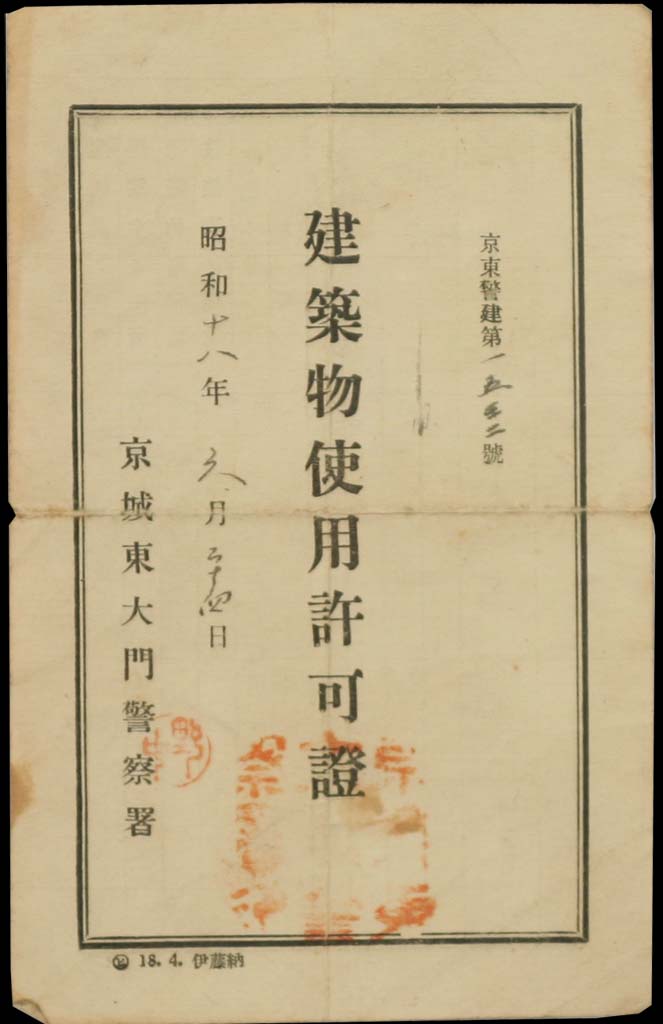 京東警建第一五五二號
建築物使用許可證
昭和十八年六月二十四日
京城東大門警察署
18.4. 伊藤納